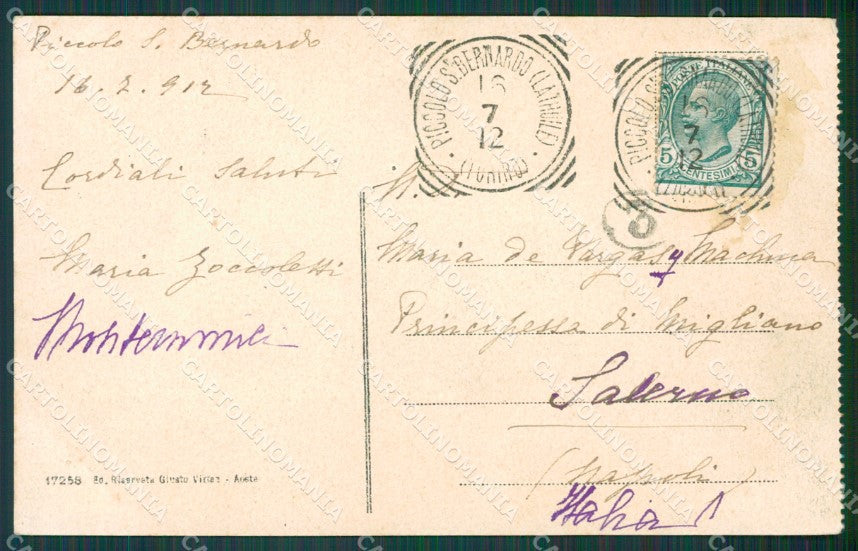 Piccolo S. Bernardo
16.7.912
Cordiali Saluti
Maria Zoccoletti
17258 Ed. Riservata Giusto Virien - Aosta
PICCOLO S. BERNARDO (LA THUILE)
16
7
12
(TORINO)
POSTE ITALIANE
5 CENTESIMI 5
Maria de Vargas y Machuca
Principessa di Migliano
Salerno
(Napoli)
Italia
CARTOLINOMANIA